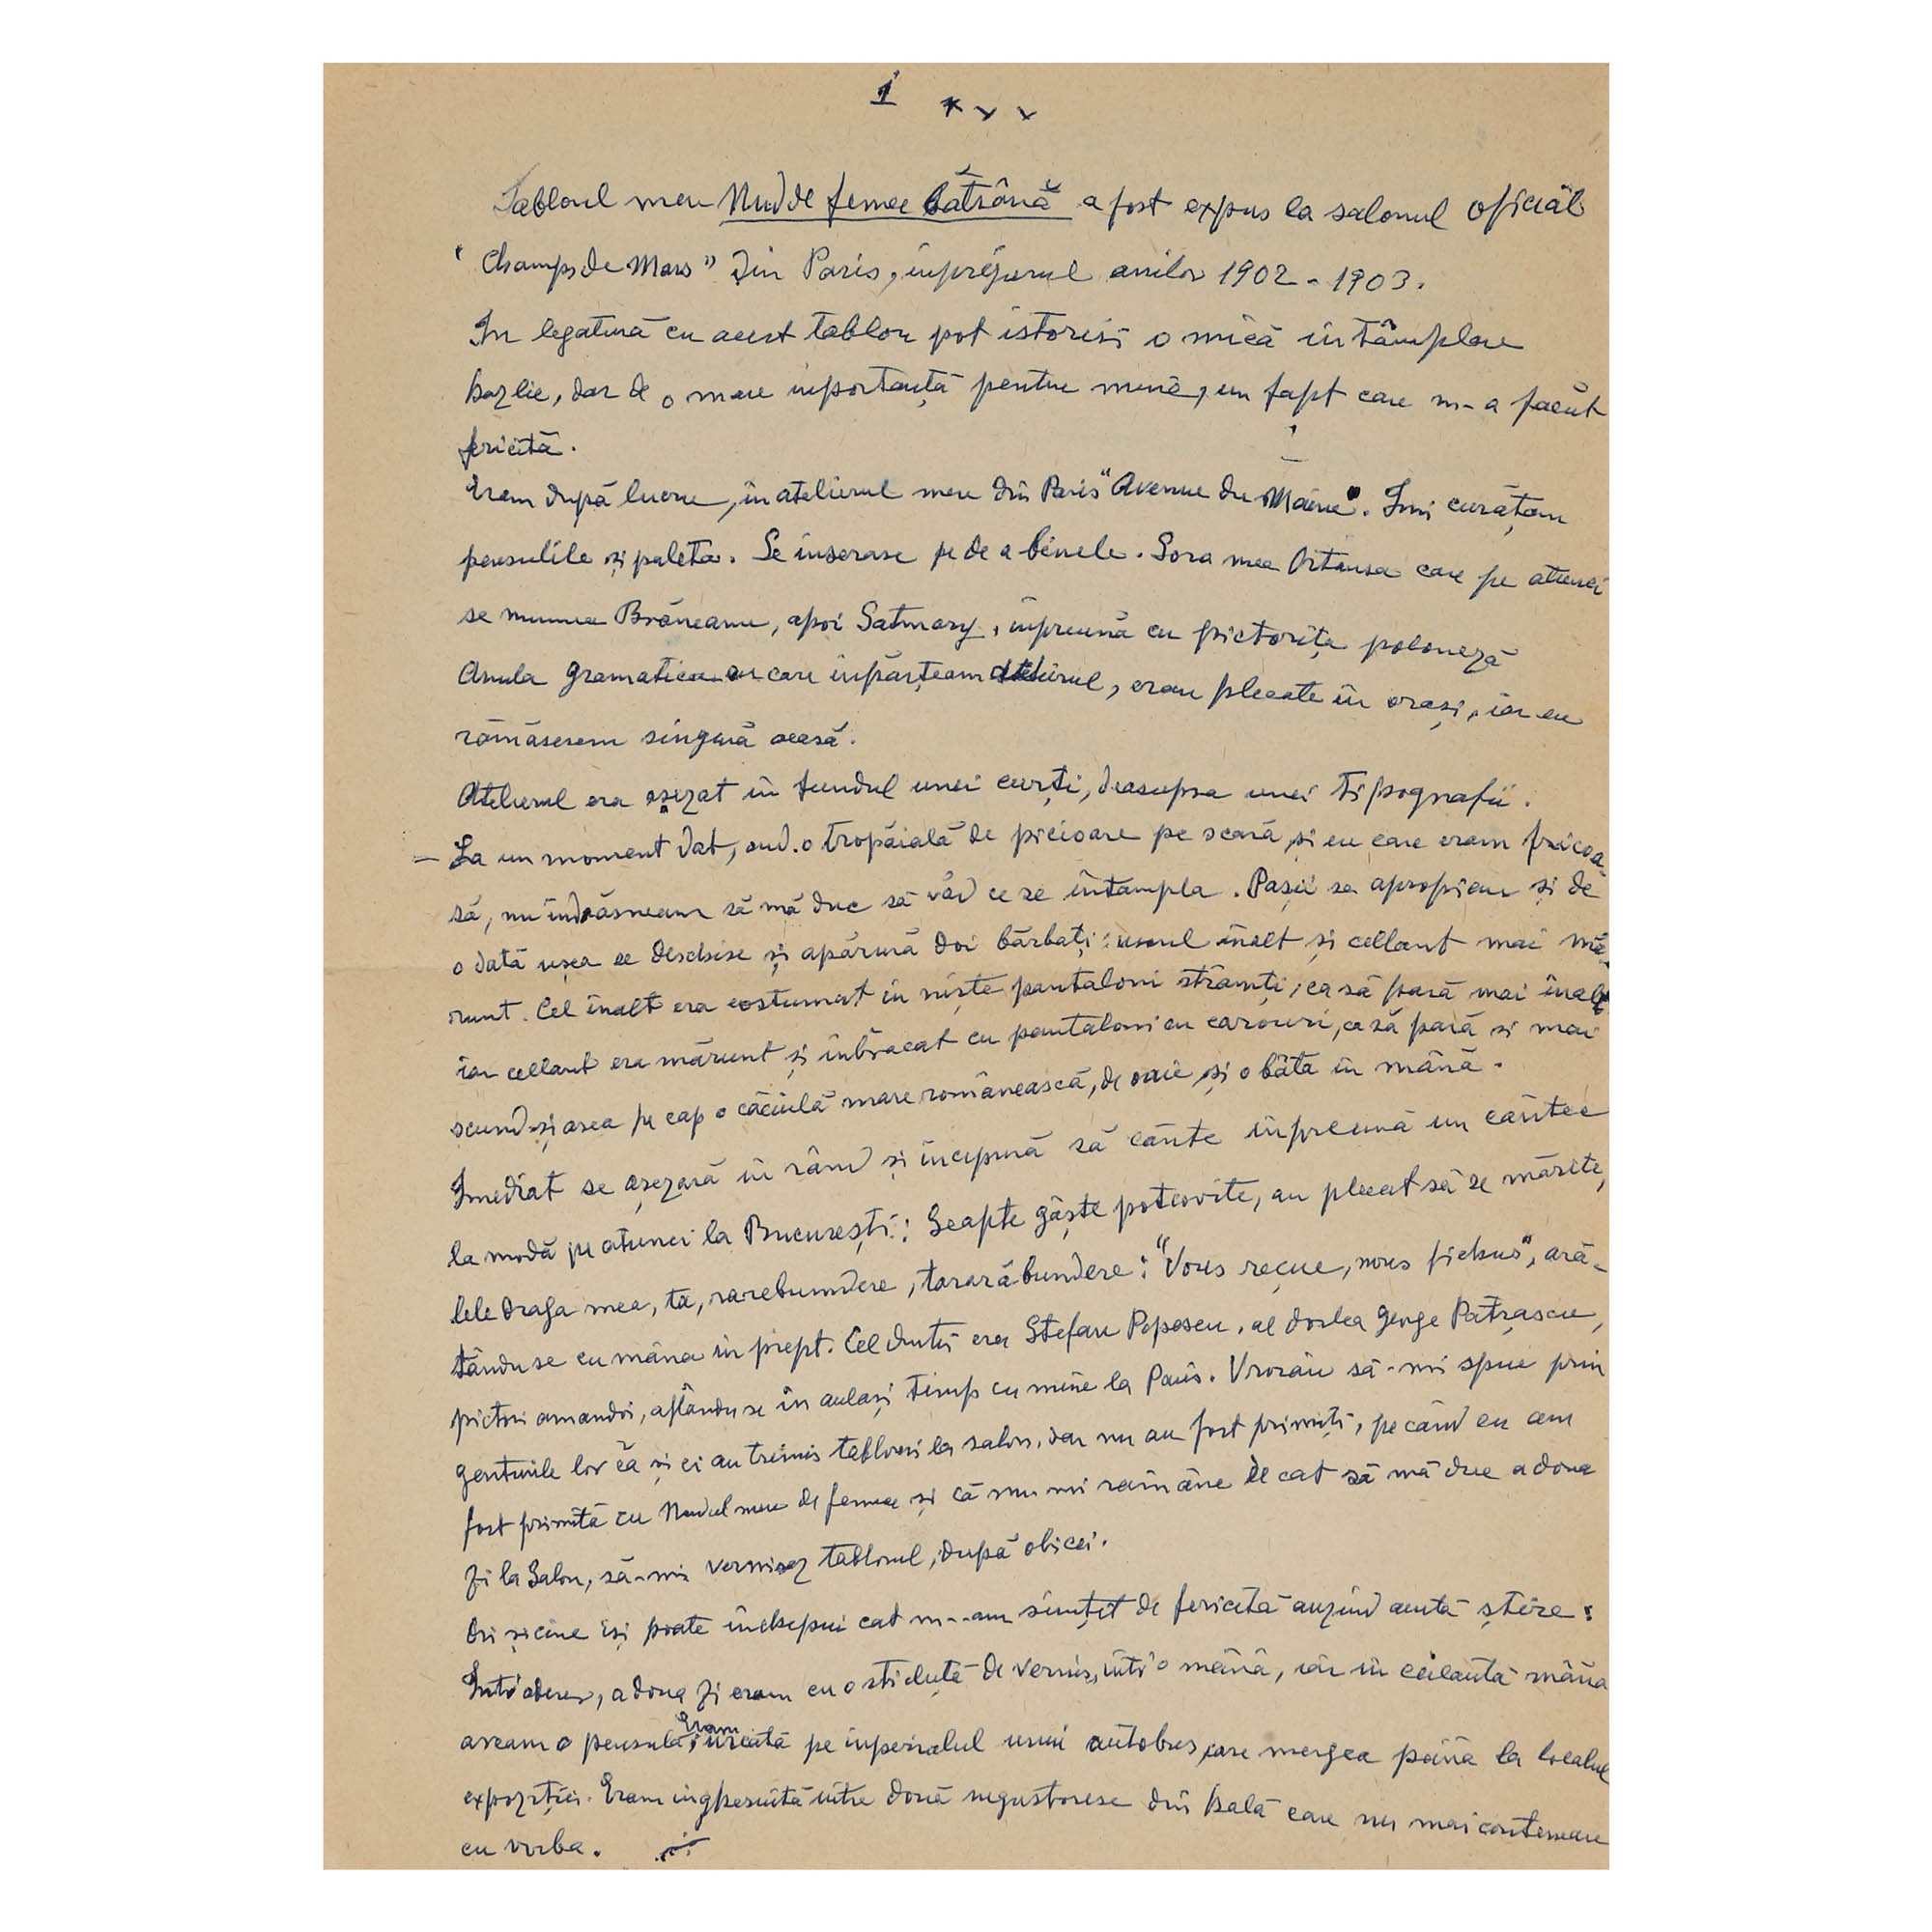 1 x x x
Tabloul meu Nud de femee bătrână a fost expus la salonul oficiăl
"Champs de Mars" din Paris, inprejurul anilor 1902 - 1903.
In legatură cu acest tablou pot istorisi o mică întâmplare
hazlie, dar de o mare inportanță pentru mine, un fapt care m-a facut
fericită.
Eram după lucru, în atelierul meu din Paris "Avenue du Maine". Imi curățam
pensulile și paleta. Se inserase pe de a binele. Sora mea Ortansa care pe atunci
se numea Brăneanu, apoi Satmary, inpreună cu pictorița poloneză
Anula Gramatica cu care inpărțeam atelierul, erau plecate în oraș, iar eu
rămăsesem singură acasă.
Atelierul era așezat in fundul unei curți, deasupra unei tipografii.
- La un moment dat, aud o tropăială de picioare pe scară și eu care eram fricoa-
să, nu îndrăsneam să mă duc să văd ce se întampla. Pașii se apropiau și de
o dată ușea se deschise și apărură doi bărbați: unul înalt și cellant mai mă-
runt. Cel înalt era costumat in niște pantaloni strâmți, ca să pară mai înalt
iar cellant era mărunt și inbracat cu pantaloni cu carouri, ca să pară si mai
scund și avea pe cap o căciulă mare românească, de oaie și o bâta in mână.
Imediat se așezară in rând și incepură să cânte inpreună un cântec
la modă pe atunci la București: Seapte gâște potcovite, au plecat să se mărite,
lele draga mea, ta, rarebumdere, tarară bundere: "Vous reçue, nous fichus", ară-
tându se cu mâna in piept. Cel dintâi era Stefan Popescu, al doilea George Patrașcu,
pictori amandoi, aflându se în acelaș timp cu mine la Paris. Vroiau să-mi spue prin
gesturile lor că și ei au trimis tablouri la salon, dar nu au fost primiți, pe când eu am
fost primită cu Nudul meu de femee și că nu mi rămâne de cat să mă duc a doua
zi la Salon, să-mi vernisez tabloul, după obicei.
Ori și cine iși poate inchipui cat m-am simțit de fericită auzind acestă știre:
Intr'adever, a doua zi eram cu o sticluță de vernis, intr'o mână, iar in ceilaltă mâna
aveam o pensula, Eram urcată pe inperialul unui autobus, care mergea până la localul
expoziției. Eram inghesuită intre două negustorese din hală care nu mai conteneau
cu vorba.